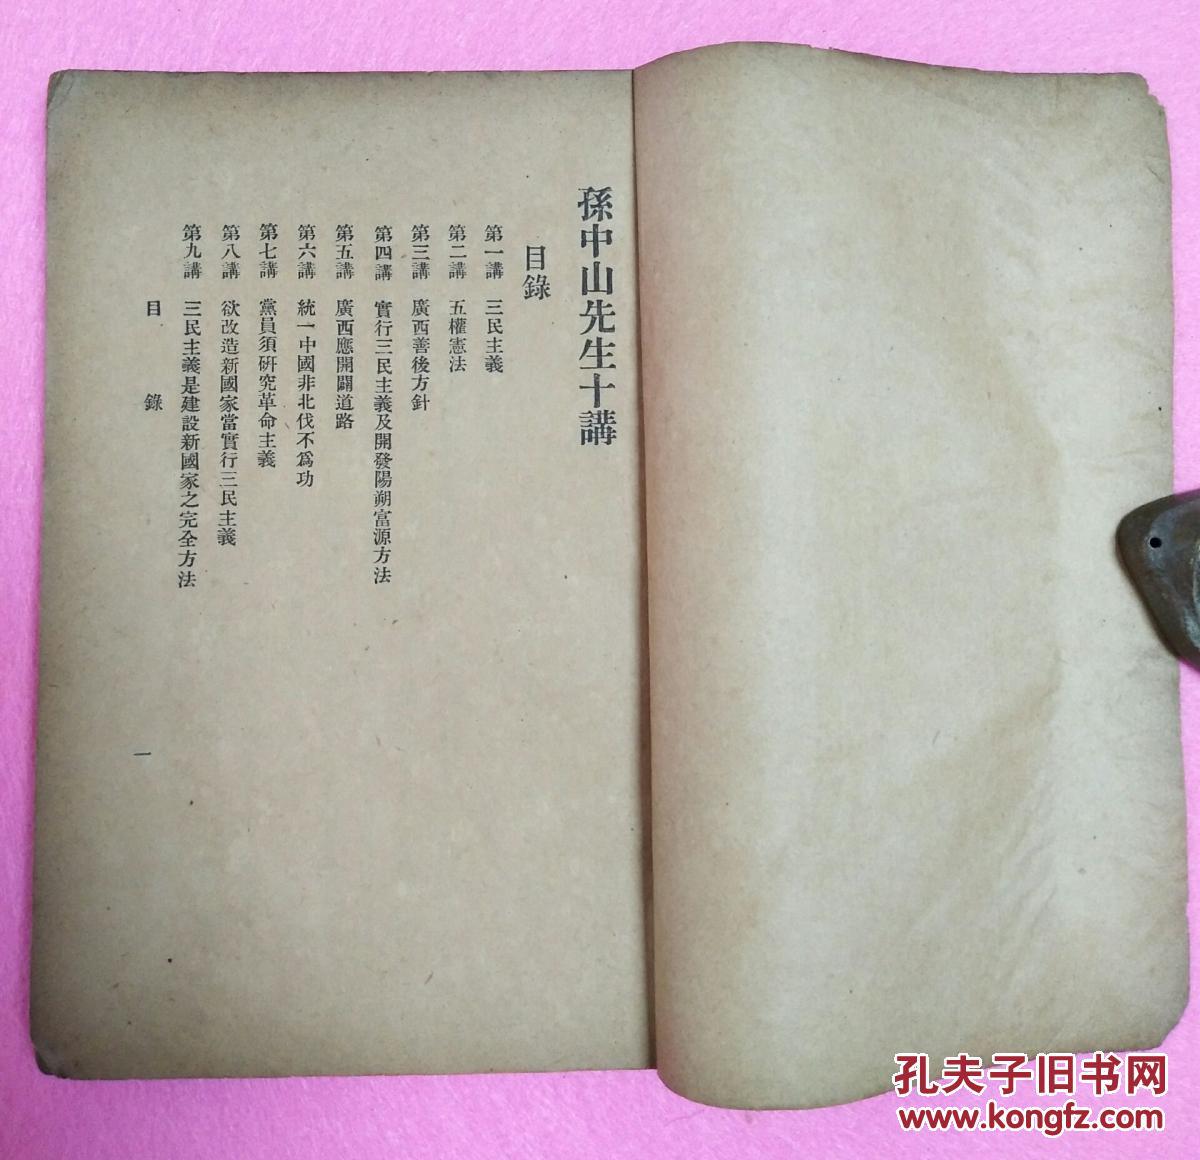 孫中山先生十講
目錄
第一講 三民主義
第二講 五權憲法
第三講 廣西善後方針
第四講 實行三民主義及開發陽朔富源方法
第五講 廣西應開闢道路
第六講 統一中國非北伐不爲功
第七講 黨員須研究革命主義
第八講 欲改造新國家當實行三民主義
第九講 三民主義是建設新國家之完全方法
目 錄
一
孔夫子旧书网
www.kongfz.com